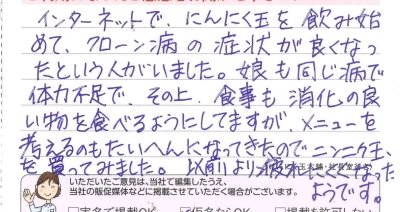 インターネットで、にんにく玉を飲み始
めて、クローン病の症状が良くなっ
たという人がいました。娘も同じ病で
体力不足で、その上、食事も消化の良
い物を食べるようにしてますが、メニューを
考えるのもたいへんになってきたのでニンニク玉
を買ってみました。以前より疲れにくくなった
ようです。
いただいたご意見は、当社で編集したうえ、
当社の販促媒体などに掲載させていただく場合がございます。